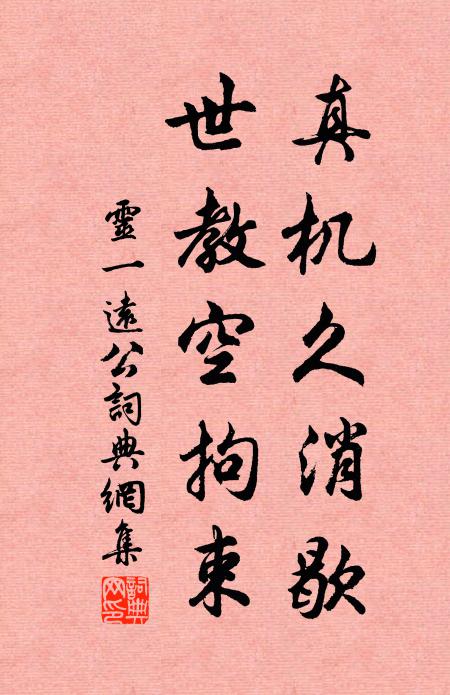 真机久消歇
世教空拘束
靈一遠公詞典網集
詞典網印